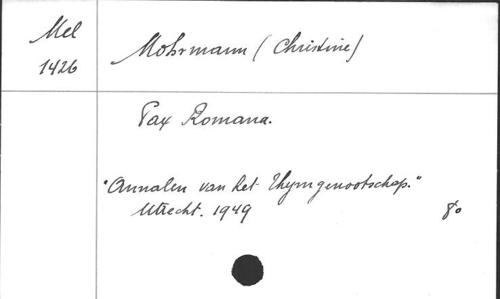 Mel
1426
Mohrmann (Christine)
Pax Romana.
"Annalen van het Thijmgenootschap."
Utrecht. 1949 8°